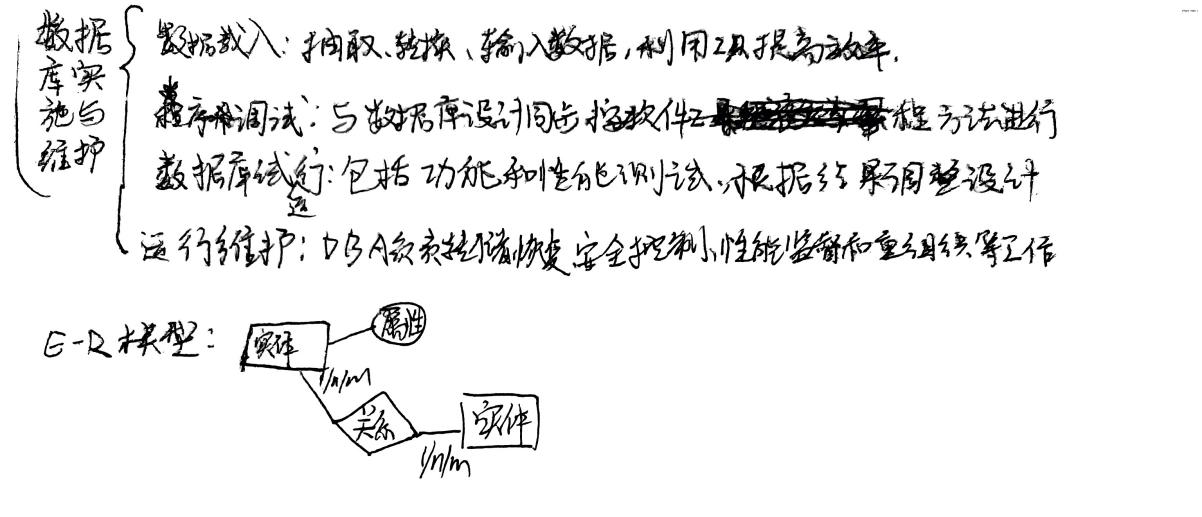 数据库实施与维护
数据载入：抽取、转换、输入数据，利用工具提高效率.
程序调试：与数据库设计同步 按软件工程方法进行
数据库试运行：包括功能和性能测试、根据结果调整设计
运行维护：DBA负责转储恢复、安全控制、性能监督和重组织等工作
E-R模型：
实体
属性
1/n/m
关系
实体
1/n/m